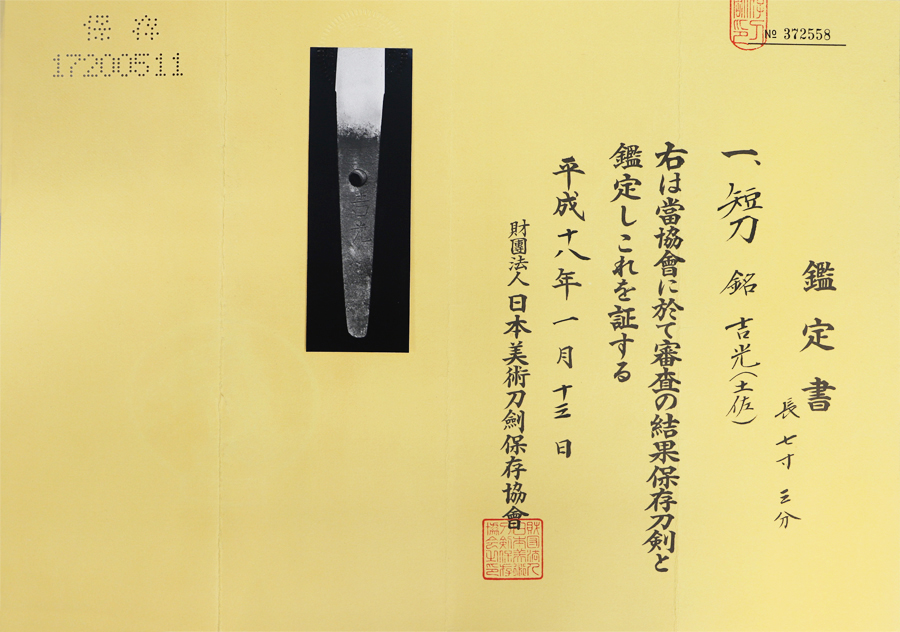 保存
17200511
№ 372558
鑑定書
一、短刀 銘 吉光(土佐)
長 七寸 三分
右は當協會に於て審査の結果保存刀剣と
鑑定しこれを証する
平成十八年一月十三日
財團法人日本美術刀劍保存協會
吉光